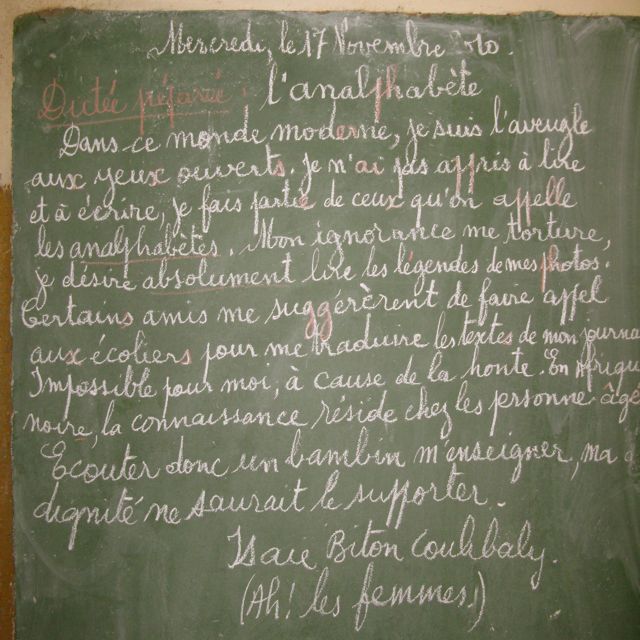 Mercredi, le 17 Novembre 2010.
Dictée préparée : l'analphabète
Dans ce monde moderne, je suis l'aveugle
aux yeux ouverts. Je n'ai pas appris à lire
et à écrire, je fais partie de ceux qu'on appelle
les analphabètes. Mon ignorance me torture,
je désire absolument lire les légendes de mes photos.
Certains amis me suggérèrent de faire appel
aux écoliers pour me traduire les textes de mon journa
Impossible pour moi, à cause de la honte. En Afrique
noire, la connaissance réside chez les personne âgé
Ecouter donc un bambin m'enseigner, ma d
dignité ne saurait le supporter.
Isaïe Biton Coulibaly.
(Ah! les femmes!)